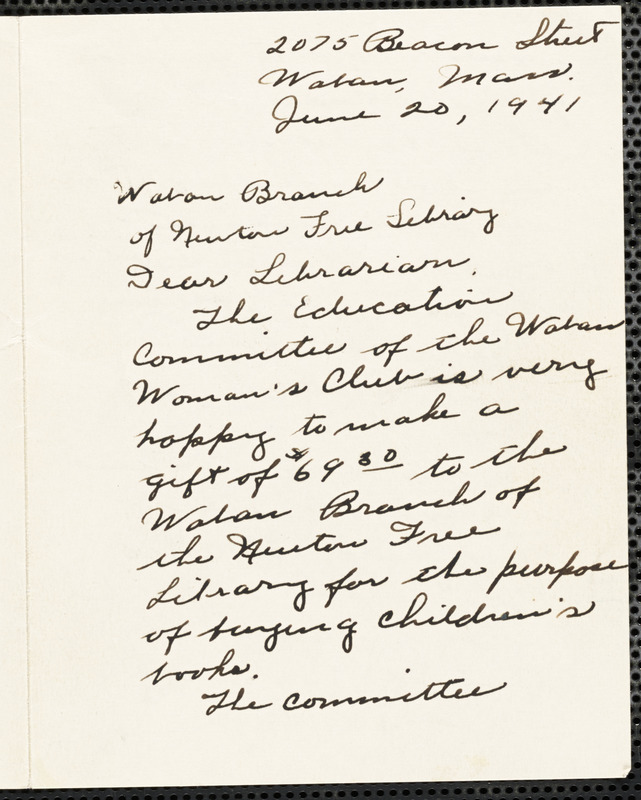 2075 Beacon Street
Waban, Mass.
June 20, 1941
Waban Branch
of Newton Free Library
Dear Librarian,
The Education
Committee of the Waban
Woman's Club is very
happy to make a
gift of $69 30 to the
Waban Branch of
the Newton Free
Library for the purpose
of buying children's
books.
The committee